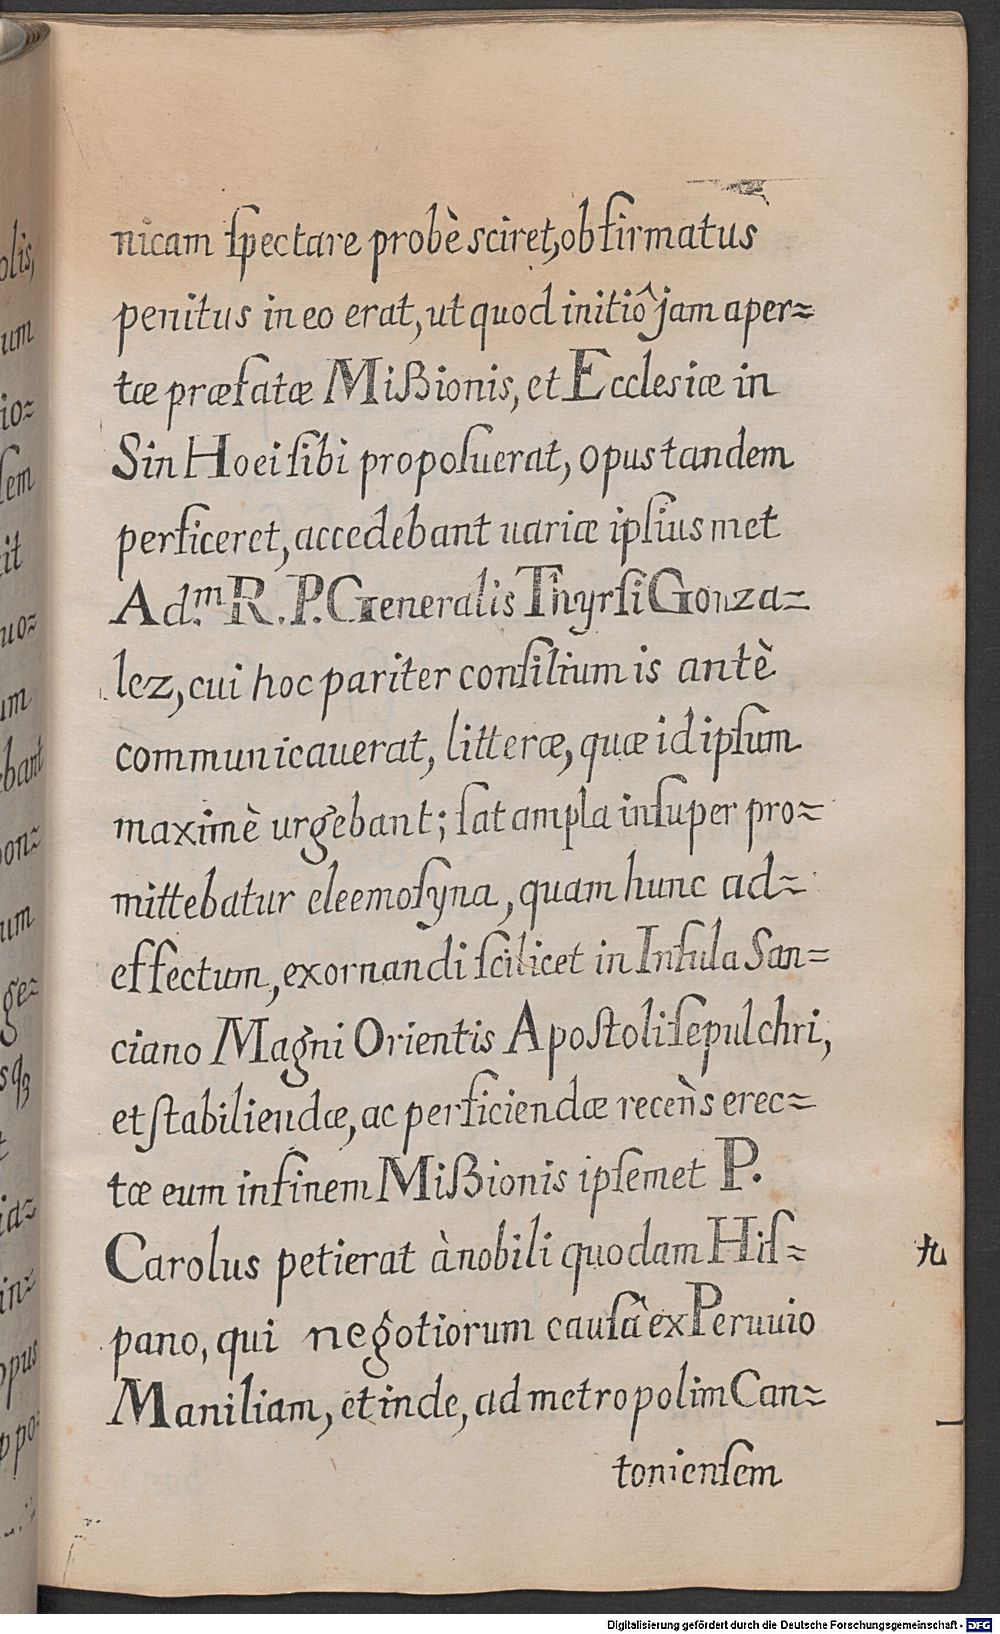 nicam ſpectare probè sciret, obfirmatus
penitus in eo erat, ut quod initiô jam aper=
tæ præfatæ Mißionis, et Ecclesiæ in
Sin Hoei ſibi propoſuerat, opus tandem
perficeret, accedebant uariæ ipſius met
Ad.m R. P. Generalis Thyrſi Gonza=
lez, cui hoc pariter conſilium is antè
communicauerat, litteræ, quæ id ipſum
maximè urgebant; ſat ampla inſuper pro=
mittebatur eleemoſyna, quam hunc ad=
effectum, exornandi ſcilicet in Inſula San=
ciano Magni Orientis Apoſtoli ſepulchri,
et ſtabiliendæ, ac perficiendæ recèns erec=
tæ eum in finem Mißionis ipſemet P.
Carolus petierat à nobili quodam Hiſ=
pano, qui negotiorum cauſâ ex Peruuio
Maniliam, et inde, ad metropolim Can=
tonienſem
九
olis,
um
io=
ſem
it
uo=
um
ebant
on=
um
ge=
sqꝫ
t
id=
in=
opus
ppo=
Digitalisierung gefördert durch die Deutsche Forschungsgemeinschaft - DFG